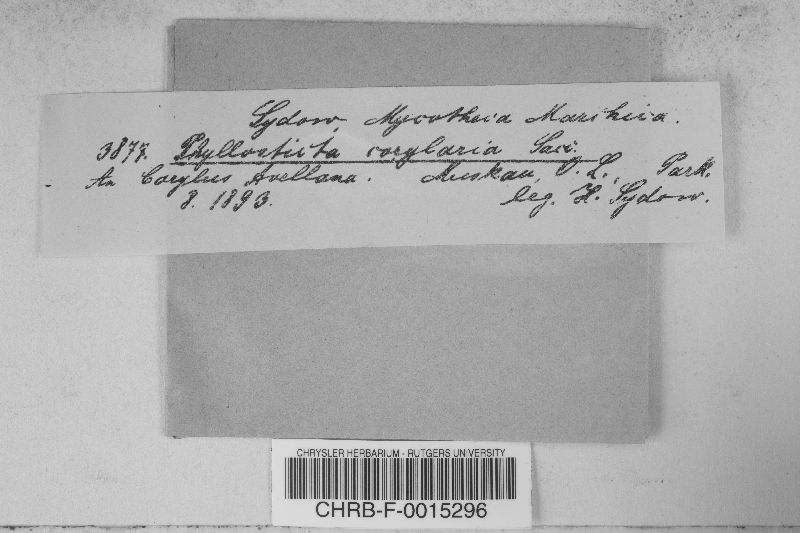 Sydow, Mycotheca Marchica.
3877. Phyllosticta corylaria Sacc.
An Corylus Avellana. Muskau, O. L., Park.
8. 1893. leg. H. Sydow.
CHRYSLER HERBARIUM - RUTGERS UNIVERSITY
CHRB-F-0015296